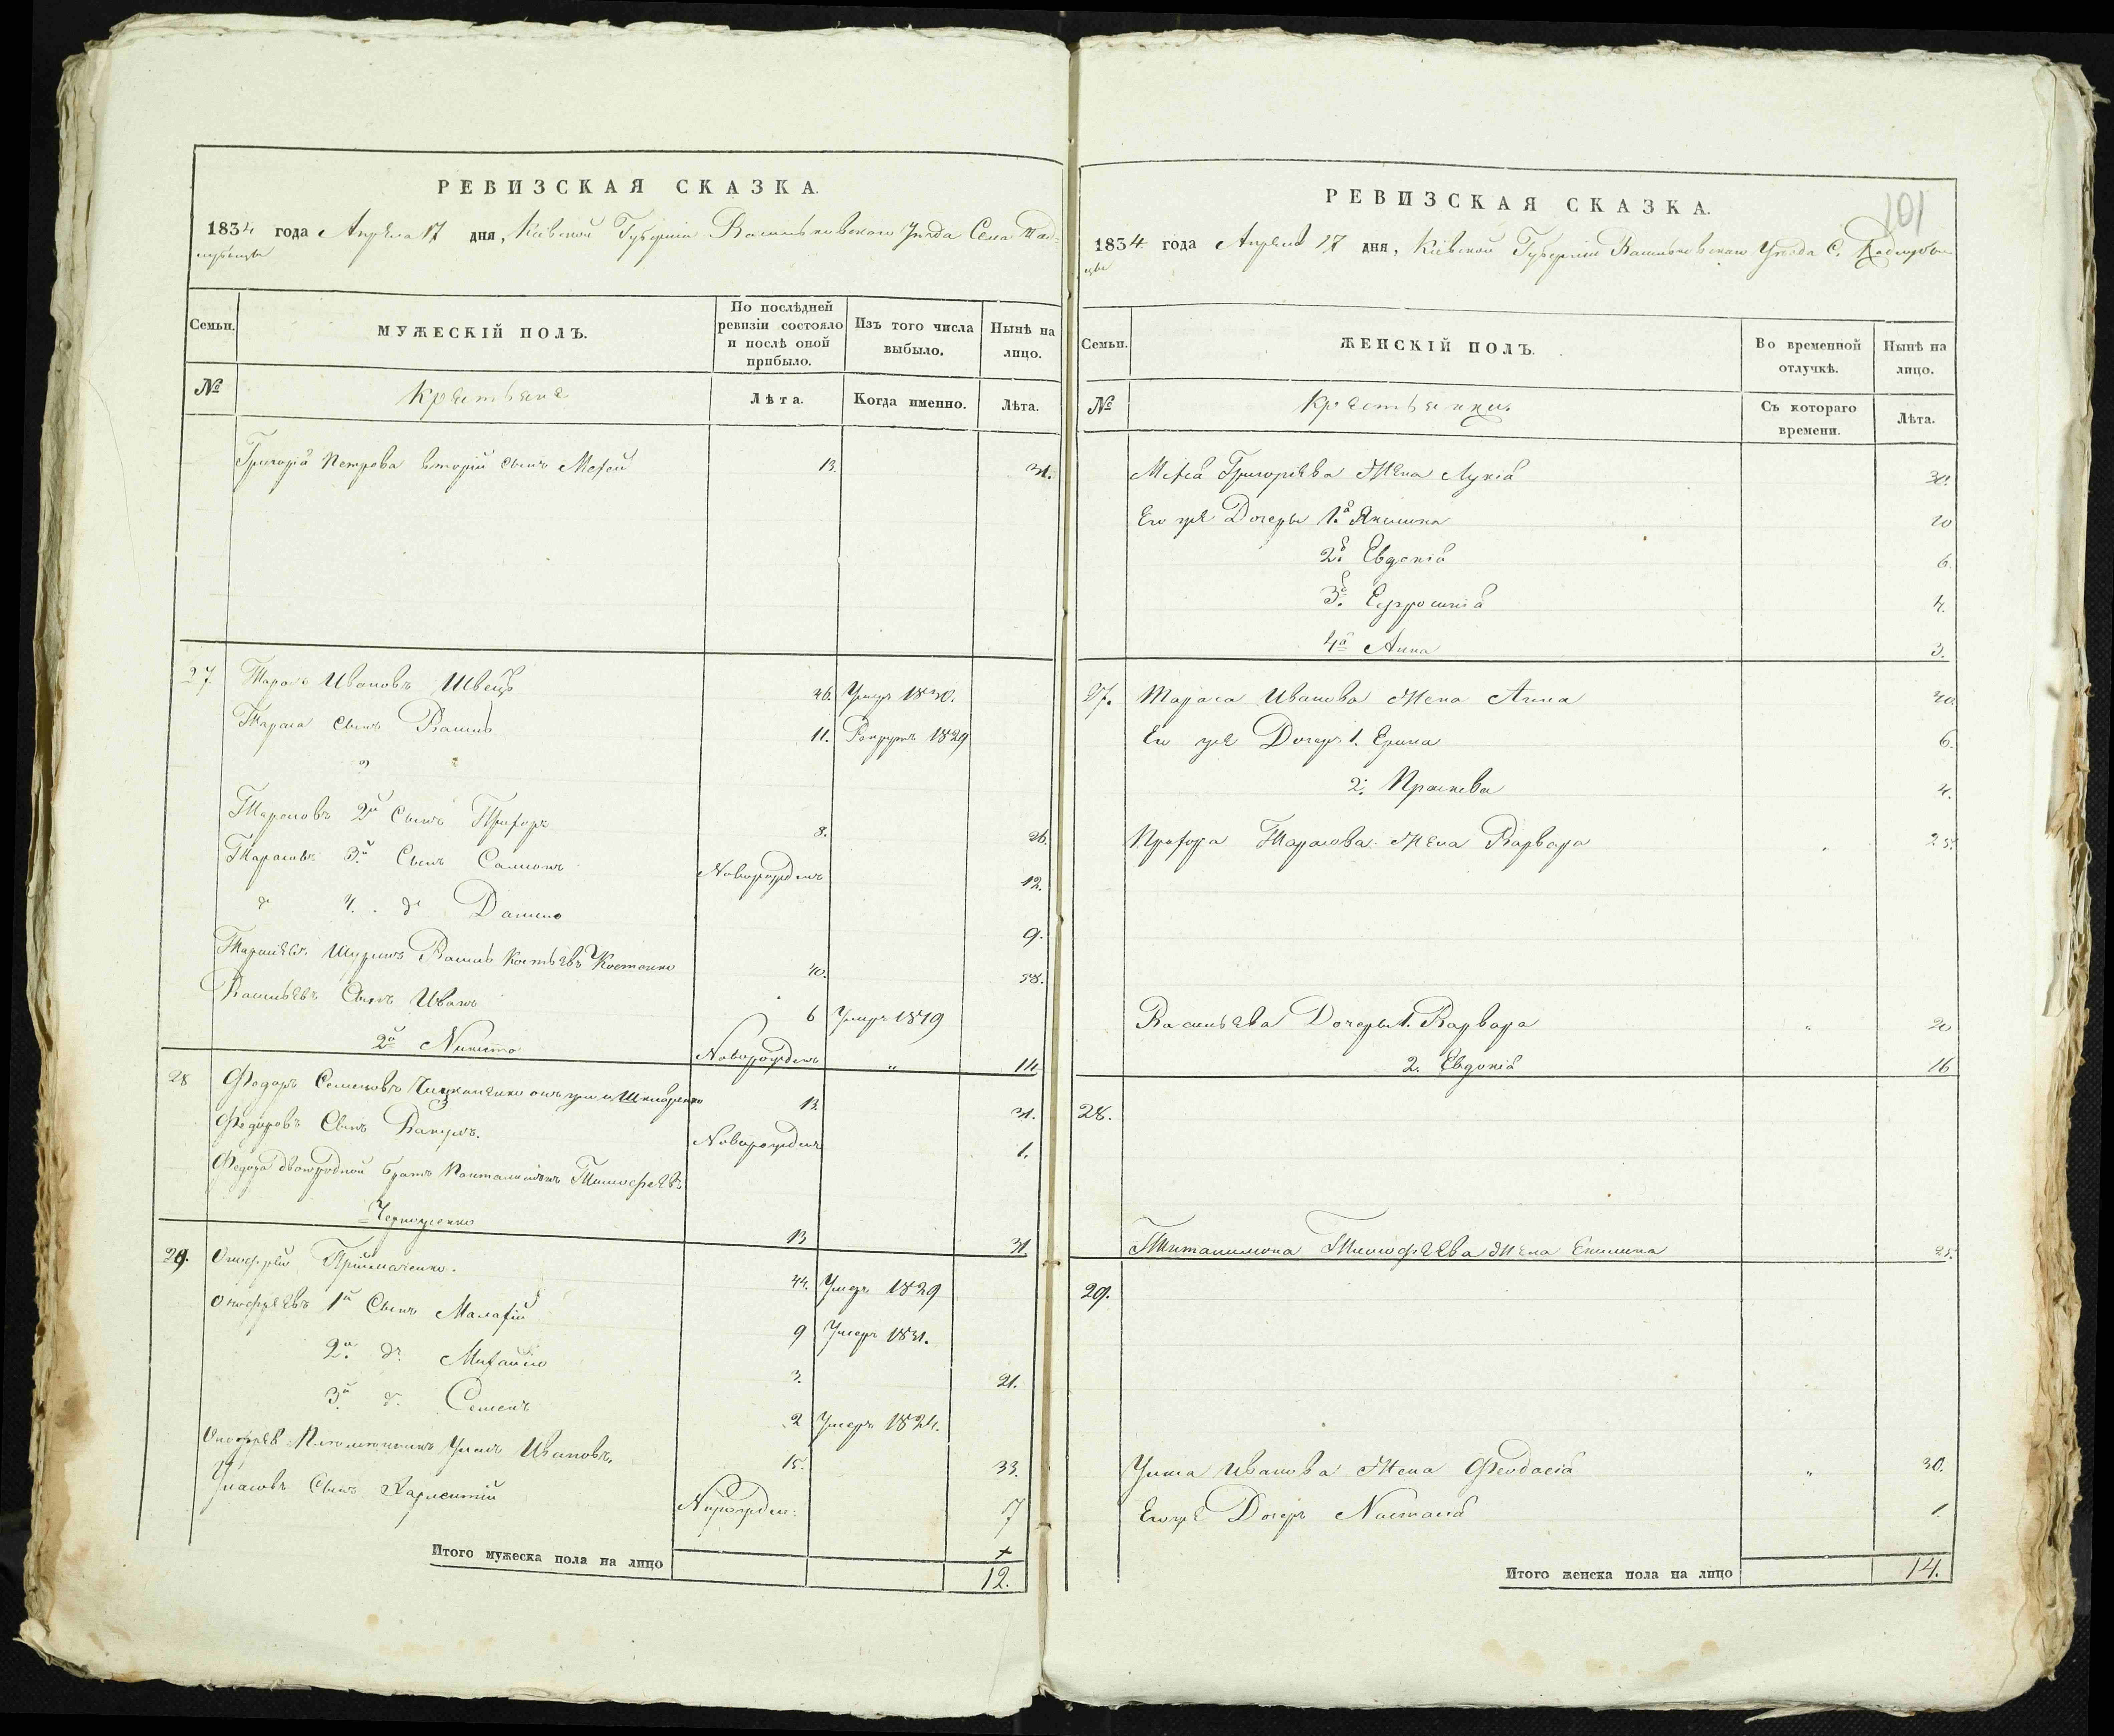 РЕВИЗСКАЯ СКАЗКА.
1834 года Апреля 17 дня, Кіевской Губерніи Васильковскаго Уѣзда Села
Семьи.
МУЖЕСКІЙ ПОЛЪ.
По послѣдней ревизіи состояло и послѣ оной прибыло.
Изъ того числа выбыло.
Нынѣ на лицо.
№
Крестьяне
Лѣта.
Когда именно.
Лѣта.
Григорія Петрова вторій сынъ Мофей 13. 31.
27 Тарасъ Ивановъ Швець 46. Умеръ 1830.
Тараса сынъ Василь 11. Рекрутъ 1829
Тарасовъ 2й Сынъ 8. 26.
Тарасовъ 3й Сынъ Самсонъ Новорожденъ 12.
4. д. Данило 9.
Шуринъ Василь Костенко 40. 58.
Васильевъ Сынъ Иванъ 6 Умеръ 1819
2й Никита Новорожденъ " 14.
28 Федоръ Семеновъ онъ же и 13. 31.
Федоровъ Сынъ Вакулъ. Новорожденъ 1.
Федора двоюродной братъ Тимофеевъ
13 31
29. Онофрей 44. Умеръ 1829
Онофреевъ 1й Сынъ Малафій 9 Умеръ 1831.
2й д. Михайло 3. 21.
3й д. Семенъ 2 Умеръ 1824.
Онофреевъ Племянникъ Уласъ Ивановъ. 15. 33.
Уласовъ Сынъ 7
Итого мужеска пола на лицо 12.
101
РЕВИЗСКАЯ СКАЗКА.
1834 года Апреля 17 дня, Кіевской Губерніи Васильковскаго Уѣзда С.
Семьи.
ЖЕНСКІЙ ПОЛЪ.
Во временной отлучкѣ.
Нынѣ на лицо.
№
Крестьянки.
Съ котораго времени.
Лѣта.
Григоріева Жена Лукія 30.
Его же Дочеры 1я Якилина 10
2я Евдокія 6.
3я Ефросинія 4.
4я Анна 3.
27. Тараса Иванова Жена Анна 40
Его же Дочери 1. Ерина 6.
2. Праскева 4.
Тарасова Жена Варвара 25.
Васильева Дочеры 1. Варвара " 20
2. Евдокія 16
28.
Тимофеева Жена Екилина 25.
29.
Уласа Иванова Жена Феодосія " 30.
Его же Дочеръ Настасія 1
Итого женска пола на лицо 14.